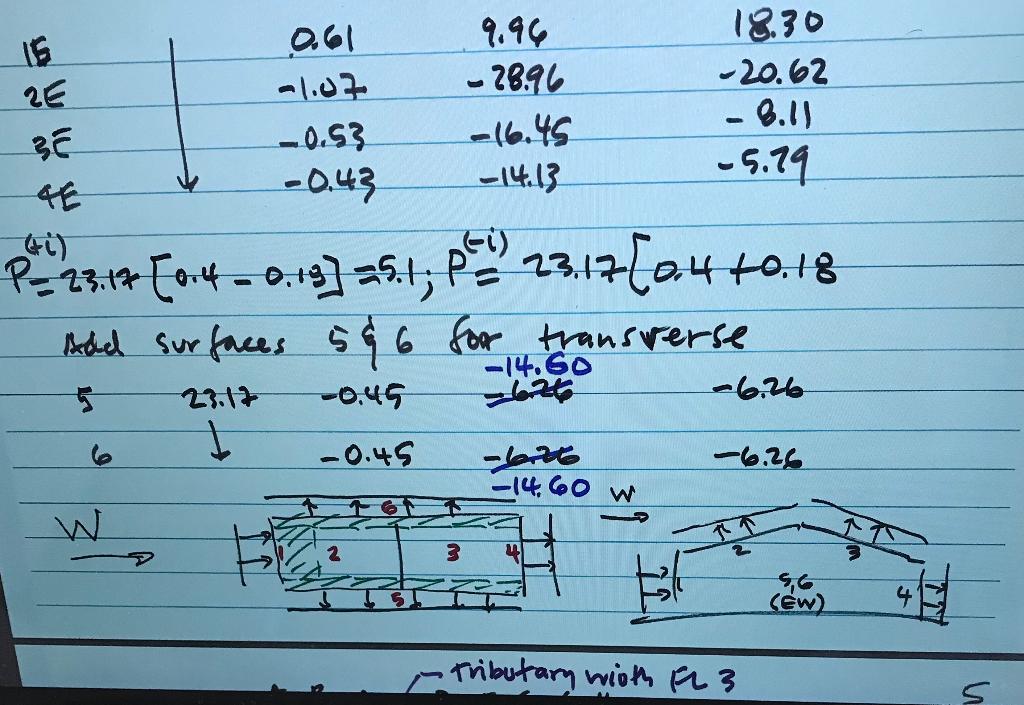 1E 0.61 9.96 18.30
2E -1.07 -28.96 -20.62
3E -0.53 -16.45 -8.11
4E -0.43 -14.13 -5.79
P(+i) = 23.17 [0.4 - 0.18] = 5.1; P(-i) = 23.17 [0.4 + 0.18
Add surfaces 5 & 6 for transverse
-14.60
5 23.17 -0.45 -6.26 -6.26
6 -0.45 -6.26 -6.26
-14.60 W
W 6
1 2 3 4 2 3
5 5,6 4
(EW)
Tributary width FL 3
5